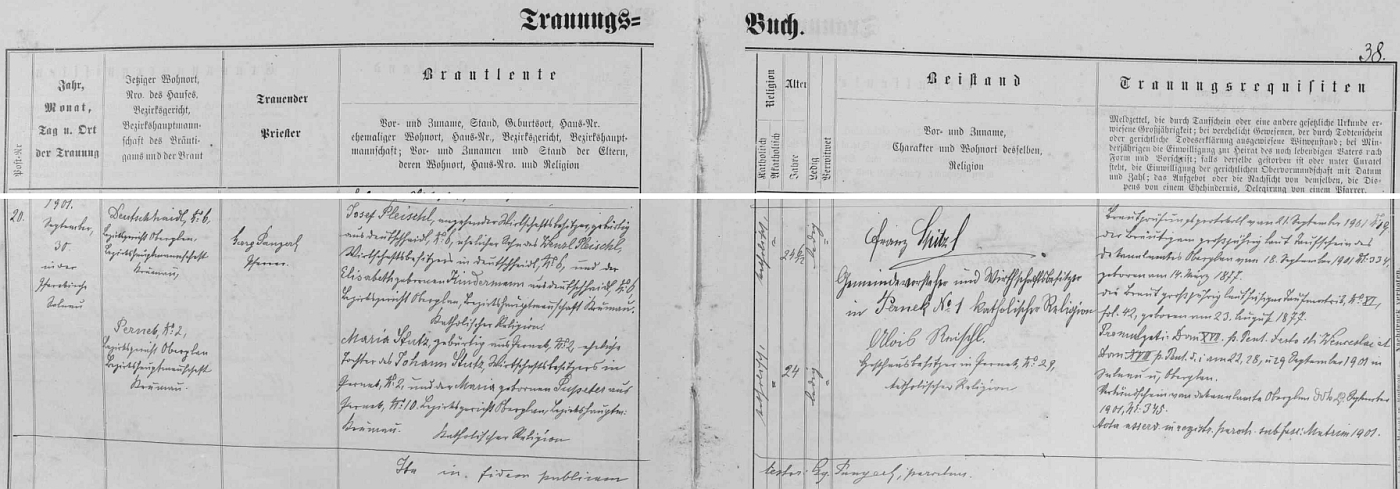 Trauungs=
Buch.
38.
Post-Nr
Jahr,
Monat,
Tag u. Ort
der Trauung
Jetziger Wohnort,
Nro. des Hauses,
Bezirksgericht,
Bezirkshauptmann-
schaft des Bräuti-
gams und der Braut
Trauender
Priester
Brautleute
Vor- und Zuname, Stand, Geburtsort, Haus-Nr.
ehemaliger Wohnort, Haus-Nr., Bezirksgericht, Bezirkshaupt-
mannschaft; Vor- und Zunamen und Stand der Eltern,
deren Wohnort, Haus-Nro. und Religion
Religion
Katholisch
Akatholisch
Alter
Jahre
Ledig
Verwitwet
Beistand
Vor- und Zuname,
Charakter und Wohnort desselben,
Religion
Trauungsrequisiten
Meldzettel, die durch Taufschein oder eine andere gesetzliche Urkunde er-
wiesene Großjährigkeit; bei verehelicht Gewesenen, der durch Todtenschein
oder gerichtliche Todeserklärung ausgewiesene Witwenstand; bei Min-
derjährigen die Einwilligung zur Heirat des noch lebenden Vaters nach
Form und Vorschrift; falls derselbe gestorben ist oder unter Curatel
steht, die Einwilligung der gerichtlichen Obervormundschaft mit Datum
und Zahl; das Aufgebot oder die Nachsicht von demselben, die Dis-
pens von einem Ehehindernis, Delegirung von einem Pfarrer.
20.
1901.
September,
30
in der
Pfarrkirche
Salnau
Deutschhaidl, No 6,
Bezirksgericht Oberplan,
Bezirkshauptmannschaft
Krumau,
Pernek, No 2,
Bezirksgericht Oberplan
Bezirkshauptmannschaft
Krumau.
Georg Pangerl
Pfarrer.
Josef Pleischl, angehender Wirtschaftsbesitzer, gebürtig
aus Deutschhaidl, No 6, ehelicher Sohn des Wenzl Pleischl,
Wirtschaftsbesitzers in Deutschhaidl, No 6, und der
Elisabeth gebornen Kindermann aus Deutschhaidl, No 6
Bezirksgericht Oberplan, Bezirkshauptmannschaft Krumau.
Katholischer Religion.
Maria Stutz, gebürtig aus Pernek, No 2, eheliche
Tochter des Johann Stutz, Wirtschaftsbesitzers in
Pernek, No 2, und der Maria gebornen aus
Pernek, No 10. Bezirksgericht Oberplan, Bezirkshauptm.
Krumau. Katholischer Religion
Ita in fidem publicam
katholisch
24
ledig
katholisch
24
ledig
Franz
Gemeindevorsteher und Wirthschaftsbesitzer
in Pernek No 1 katholischer Religion
Alois Reischl.
Gasthausbesitzer in Pernek, No 29,
katholischer Religion
testor: Gg. Pangerl, parochus.
Brautprüfungsprotokoll vom 21. September 1901
Der Bräutigam großjährig laut Taufschein des
Dekanalamtes Oberplan vom 18. September 1901 No 334,
geboren am 14. März 1877.
Die Braut großjährig laut hiesiger Taufmatrik, No VI,
fol. 42, geboren am 23. August 1877.
Promulgati: Dom XVI. p. Pent. Festo Sti Wenceslai et
Dom XVII p. Pent. d. i. am 22, 28, u 29 September 1901 in
Salnau u. Oberplan.
Verkündschein vom Dekanalamte Oberplan ddto September
1901, No 345.
Acta asserv. in registr. paroch. sub fasc: Matrim 1901.